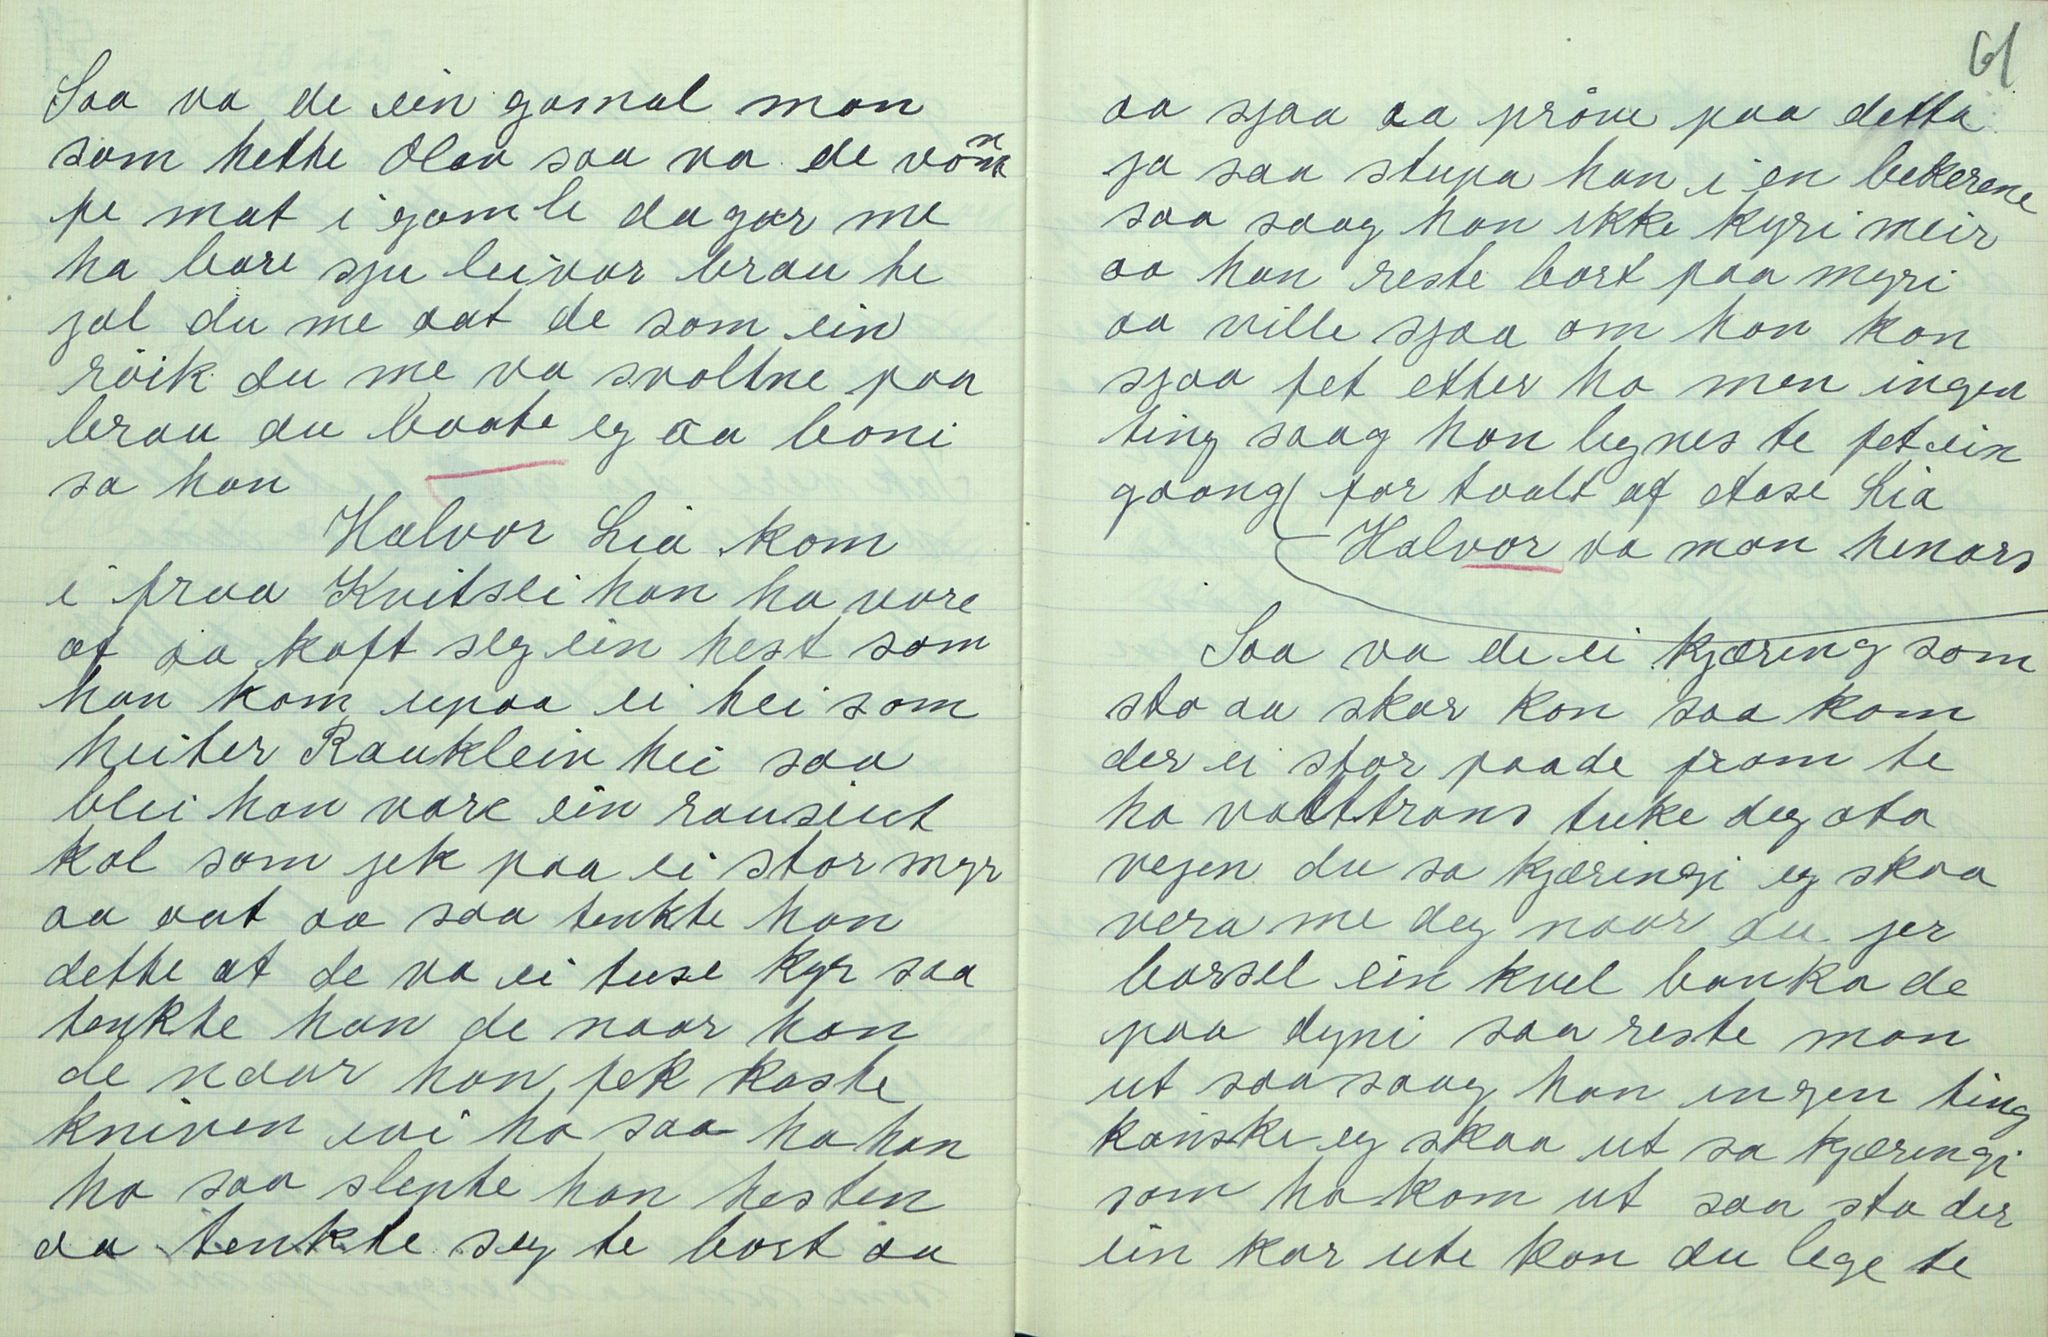 Saa va de ein gamal man
som hette Olav saa va de vån
pe mat i gamle dagar me
ha bare sju leivar brau te
jol du me aat de som ein
røik du me va svoltne paa
brau du baate eg aa boni
sa han
Halvor Lia kom
i fraa Kvitsei han ha vore
at aa kaft seg ein hest som
han kom upaa ei hei som
heiter Rauklein hei saa
blei han vare ein rausiut
kal som jek paa ei stor myr
aa aat aa saa tenkte han
dette at de va ei tuse kyr saa
tenkte han de naar han
de naar han fek kaste
kniven ivi ho saa ha han
ho saa slepte han hesten
aa tenkte seg te bort aa
61
aa sjaa aa prøve paa detta
ja saa stupa han i en bekerene
saa saag han ikke kyri meir
aa han reste bort paa myri
aa ville sjaa om han kan
sjaa fet etter ho men ingen
ting saag han legnes te fet ein
gaang for taalt af Aase Lia
Halvor va man henars
Saa va de ei kjæring som
sto aa skar kon saa kom
der ei stor paade fram te
ho vattrans tuke deg ata
vejen du sa kjæringi eg skaa
vera me deg naar du jer
barsel ein kvel banka de
paa dyni saa reste man
ut saa saag han ingen ting
kanske eg skaa ut sa kjæringi
som ho kom ut saa sto der
ein kar ute kan du lege te